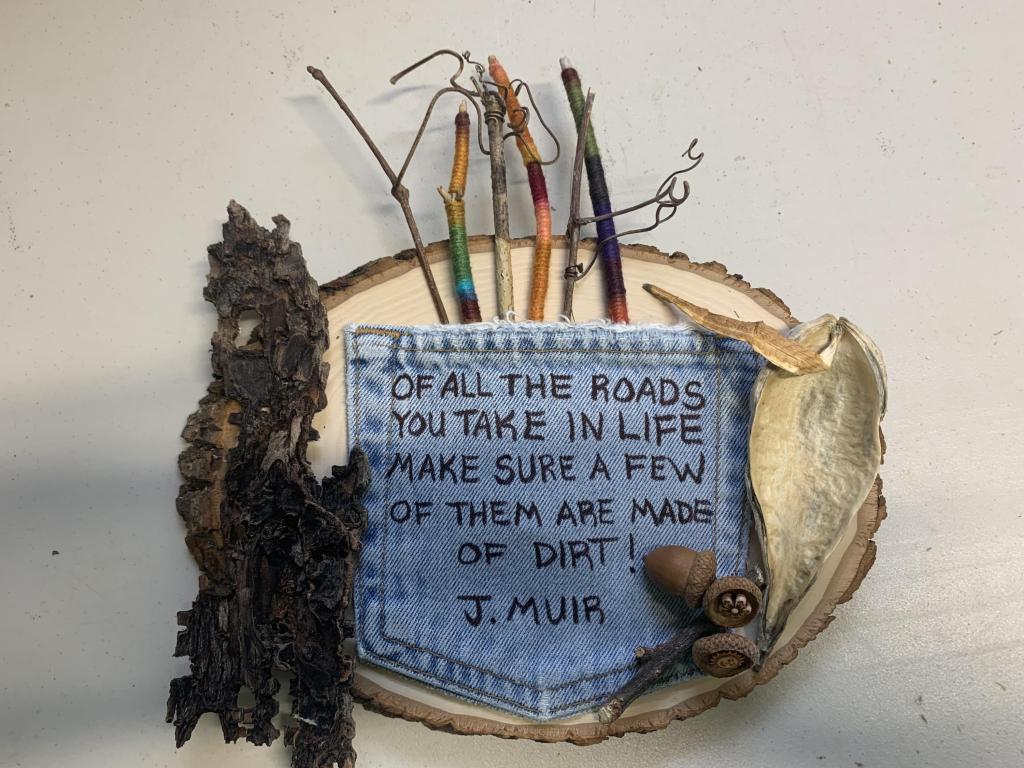 OF ALL THE ROADS
YOU TAKE IN LIFE
MAKE SURE A FEW
OF THEM ARE MADE
OF DIRT!
J. MUIR